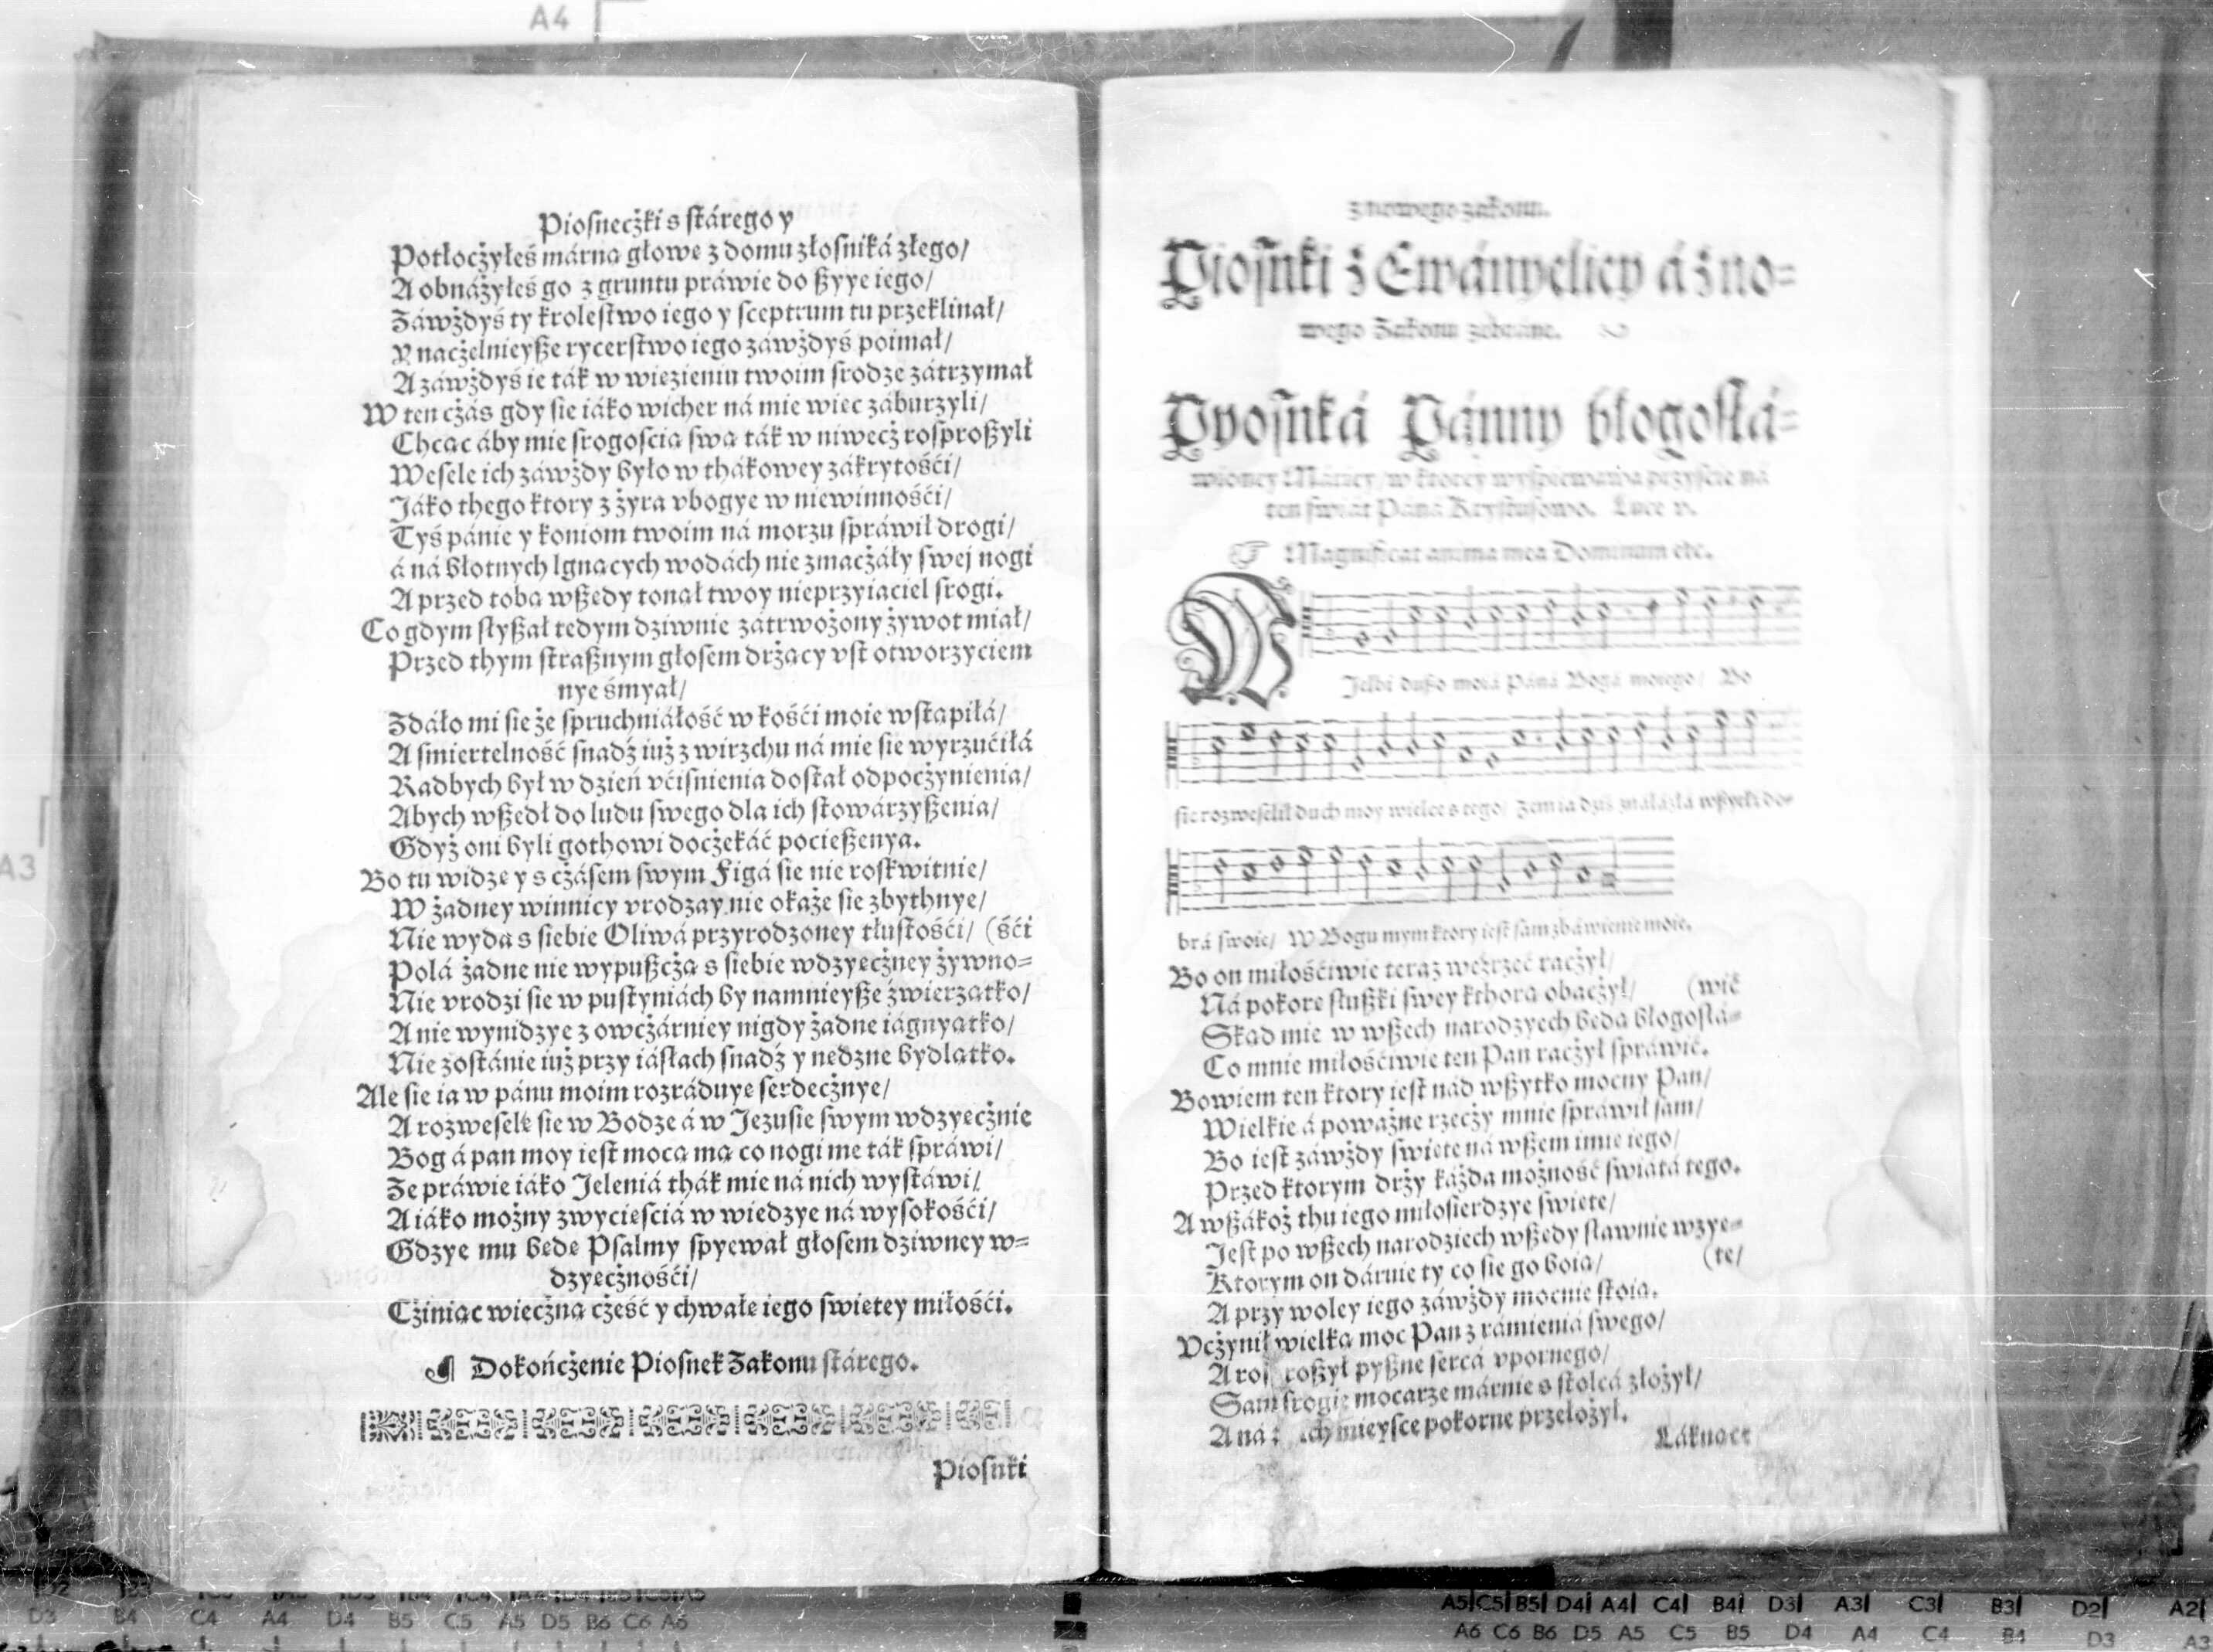 A4
A3
Piosnecżki s stárego y
Potłocżyłeś márną głowe z domu złosniká złego/
A obnáżyłeś go z gruntu práwie do ßyye iego/
Záwżdyś ty krolestwo iego y sceptrum tu przeklinał/
Y nacżelnieyße rycerstwo iego záwżdyś poimał/
A záwżdyś ie ták w wiezieniu twoim srodze zátrzymał
W ten cżás gdy sie iáko wicher ná mie wiec záburzyli/
Chcąc áby mie srogoscią swą ták w niwecż rosproßyli
Wesele ich záwżdy było w thákowey zákrytośći/
Jáko thego ktory z żyra vbogye w niewinnośći/
Tyś pánie y koniom twoim ná morzu spráwił drogi/
á ná błotnych lgnących wodách nie zmacżáły swej nogi
A przed tobą wßedy tonął twoy nieprzyiaciel srogi.
Co gdym słyßał tedym dziwnie zátrwożony żywot miał/
Przed thym straßnym głosem drżący vst otworzyciem
nye śmyał/
Zdáło mi sie że spruchniáłość w kośći moie wstąpiłá/
A smiertelność snadź iuż z wirzchu ná mie sie wyrzućiłá
Radbych był w dzień vćisnienia dostał odpocżynienia/
Abych wßedł do ludu swego dla ich stowárzyßenia/
Gdyż oni byli gothowi docżekáć pocießenya.
Bo tu widze y s cżásem swym Figá sie nie roskwitnie/
W żadney winnicy vrodzay nie okaże sie zbythnye/
Nie wyda s siebie Oliwá przyrodzoney tłustośći/ (śći
Polá żadne nie wypußcżą s siebie wdzyecżney żywno=
Nie vrodzi sie w pustyniách by namnieyße źwierzątko/
A nie wynidzye z owcżárniey nigdy żadne iágnyątko/
Nie zostánie iuż przy iásłach snadź y nedzne bydlątko.
Ale sie ia w pánu moim rozráduye serdecżnye/
A rozwesele sie w Bodze á w Jezusie swym wdzyecżnie
Bog á pan moy iest mocą mą co nogi me ták spráwi/
Że práwie iáko Jeleniá thák mie ná nich wystáwi/
A iáko możny zwyciescá w wiedzye ná wysokośći/
Gdzye mu bede Psalmy spyewał głosem dziwney w=
dzyecżnośći/
Cżiniąc wiecżną cżeść y chwałe iego swietey miłośći.
¶ Dokończenie Piosnek Zakonu stárego.
Piosnki
z nowego zakonu.
Piosnki ż Ewányelicy á ż no=
wego Zakonu zebráne.
Pyosnká Pánny błogosłá=
wioney Máriey/ w ktorey wyspiewawa przyscie ná
ten swiát Páná Krystusowo. Luce v.
☞ Magnificat anima mea Dominum etc.
Wielbi dußo moiá Páná Bogá moiego/ Bo
sie rozweselił duch moy wielce s tego/ Żem ia dziś ználázłá wßyćki do-
brá swoie/ W Bogu mym ktory iest sam zbáwienie moie.
Bo on miłośćiwie teraz weźrzeć racżył/
Ná pokorę słußki swey kthorą obacżył/ (wić
Skąd mie w wßech narodzyech bedą błogosłá=
Co mnie miłośćiwie ten Pan racżył spráwić.
Bowiem ten ktory iest nád wßytko mocny Pan/
Wielkie á poważne rzecży mnie spráwił sam/
Bo iest záwżdy swiete ná wßem imię iego/
Przed ktorym drży káżda możność swiátá tego.
A wßákoż thu iego miłosierdzye swiete/
Jest po wßech narodziech wßedy sławnie wzye=
Ktorym on dáruie ty co sie go boią/ (te/
A przy woley iego záwżdy mocnie stoią.
Vcżynił wielką moc Pan z rámieniá swego/
A ros roßył pyßne sercá vpornego/
Sam srogie mocarze márnie s stolcá złożył/
A ná ich mieysce pokorne przełożył.
Láknące
D3 B4 C4 A4 D4 B5 C5 A5 D5 B6 C6 A6
A5 C5 B5 D4 A4 C4 B4 D3 A3 C3 B3 D2 A2
A6 C6 B6 D5 A5 C5 B5 D4 A4 C4 B4 D3 A3